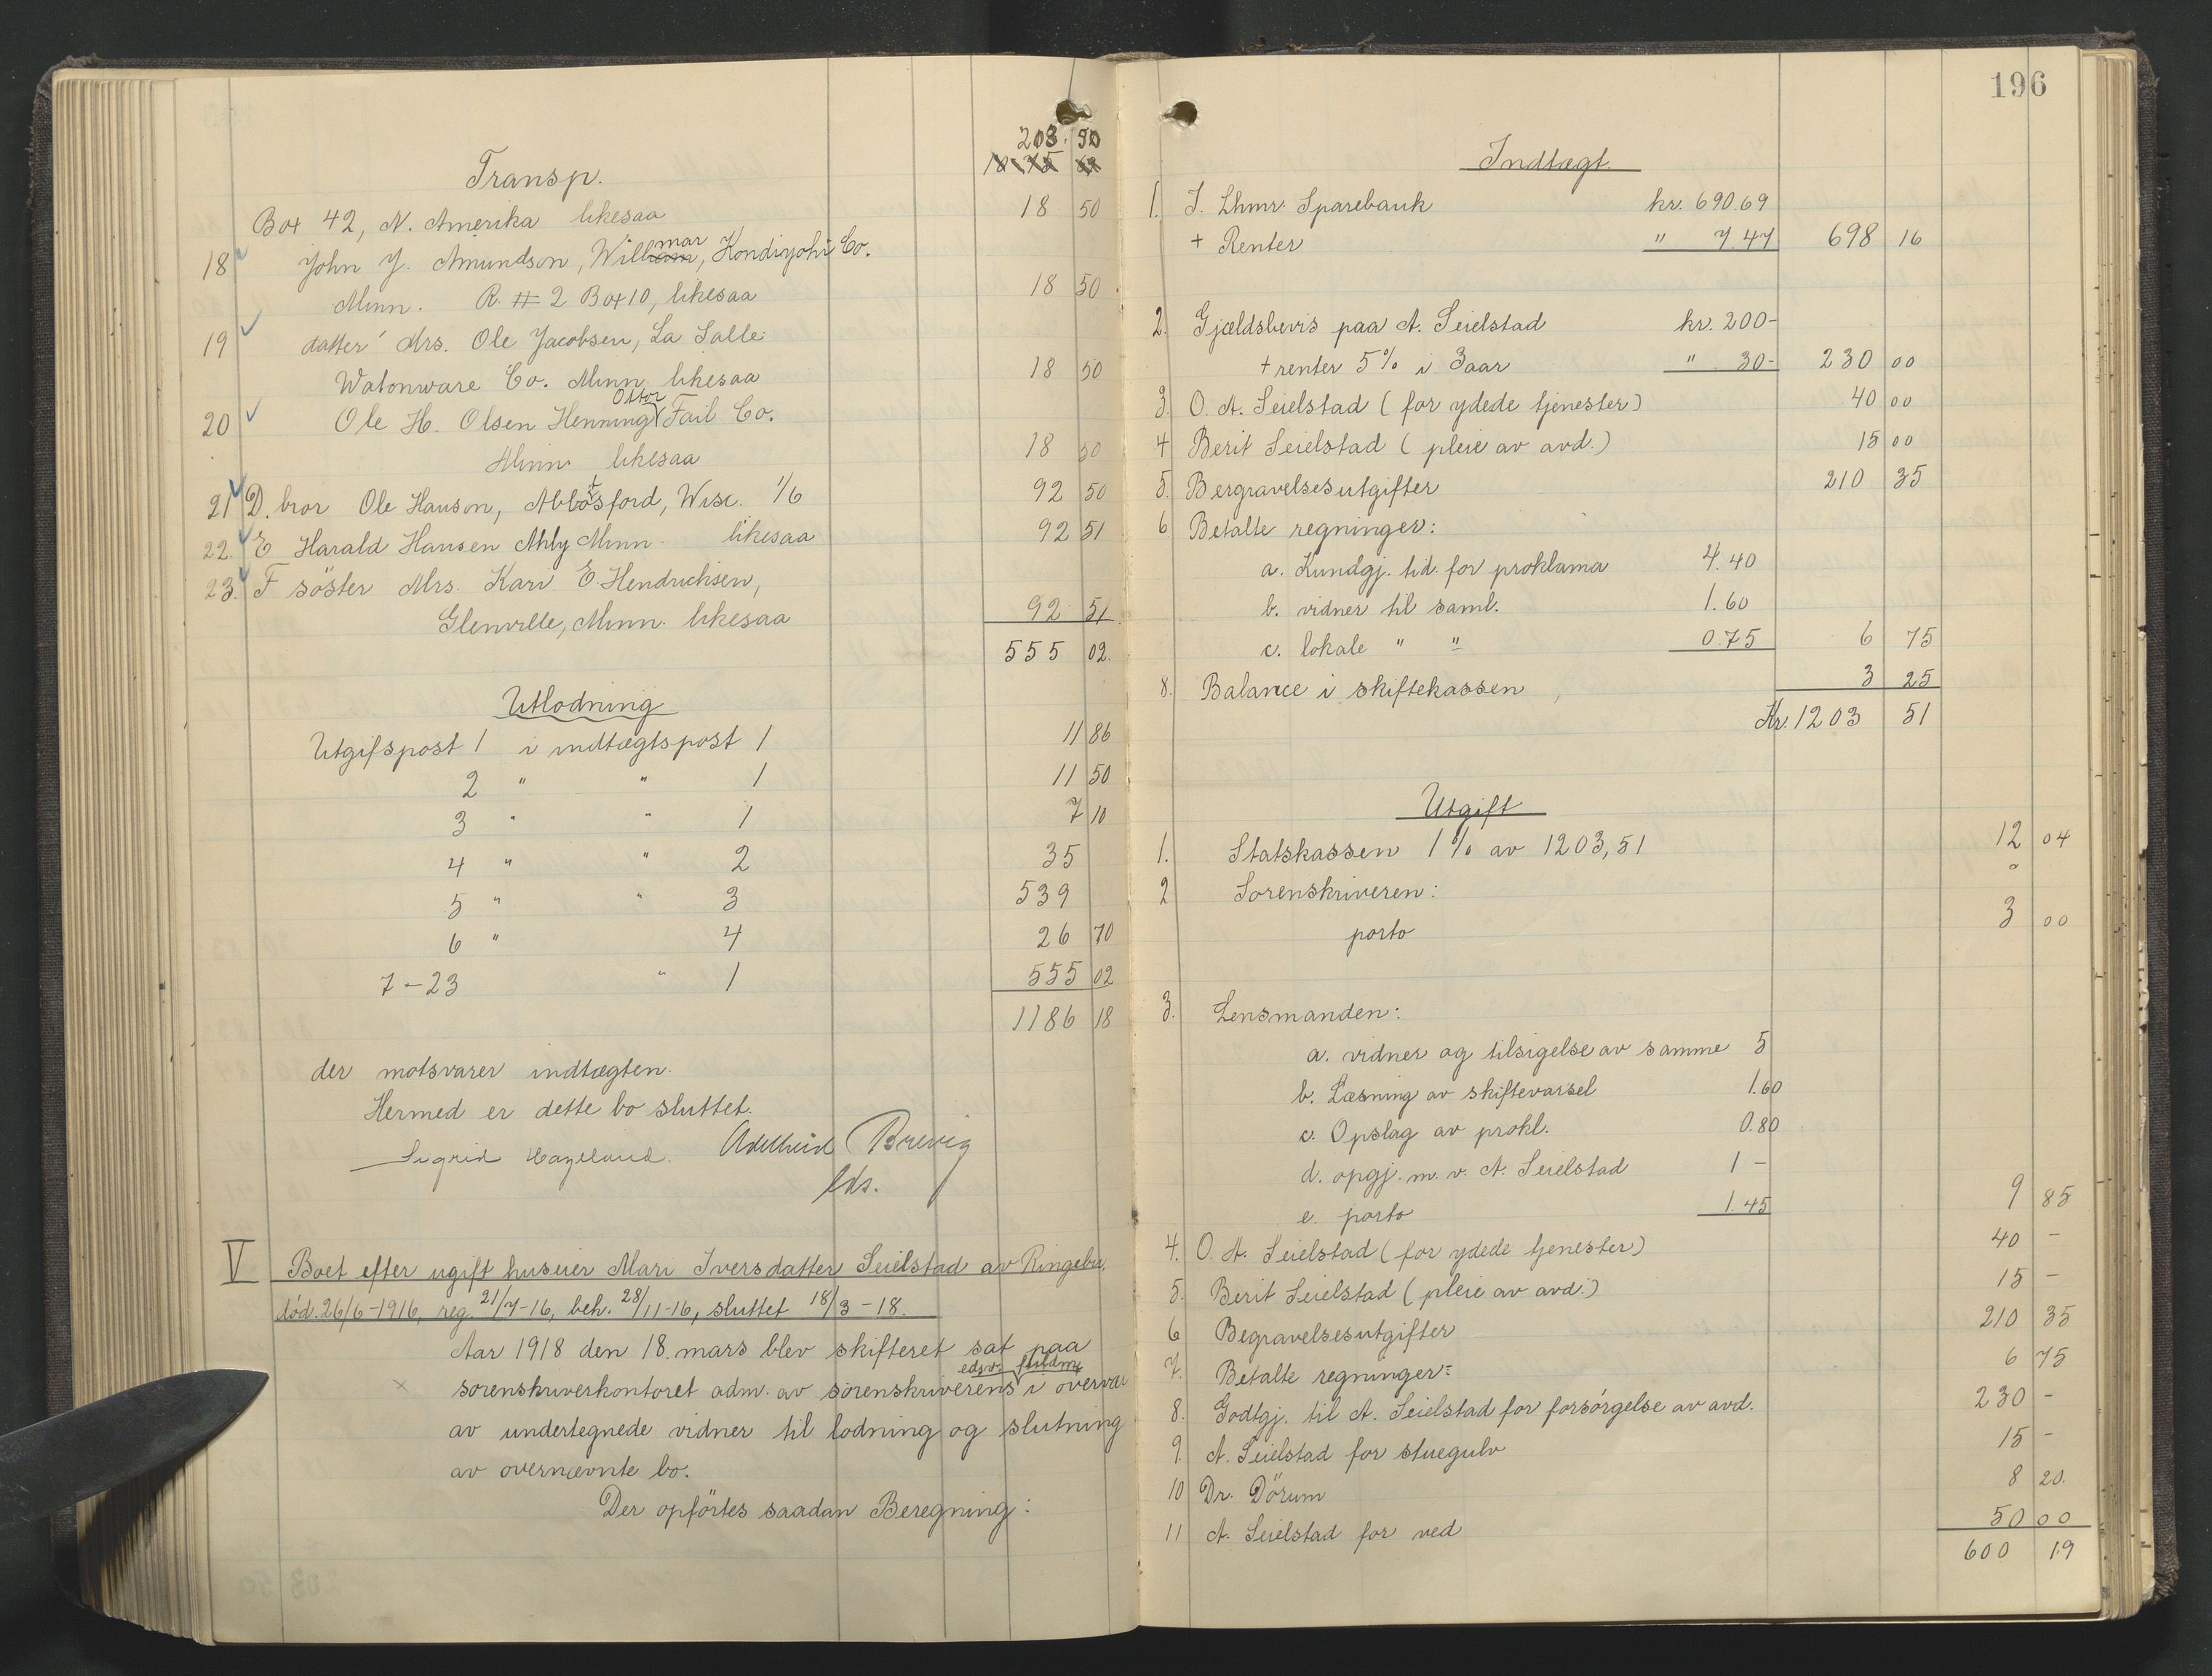 203. 50
Transp.
Box 42, N. Amerika likesaa 18 50
18 John J. Amundson, Willmar, Kondiyohi Co.
Minn. R. # 2 Box 10, likesaa 18 50
19 datter Mrs. Ole Jacobsen, La Salle
Watonware Co. Minn. likesaa 18 50
20 Ole H. Olsen Henning Ottor Fail Co.
Minn likesaa 18 50
21 D. bror Ole Hanson, Abbotsford, Wisc. 1/6 92 50
22. E Harald Hansen Ahly Minn. likesaa 92 51
23. F söster Mrs. Kari E. Hendrichsen,
Glenville, Minn. likesaa 92 51
555 02.
Utlodning
Utgifspost 1 i indtægtspost 1 11 86
2 " " 1 11 50
3 " " 1 7 10
4 " " 2 35
5 " " 3 539
6 " 4 26 70
7-23 " 1 555 02
1186 18
der motsvarer indtægten.
Hermed er dette bo sluttet.
Sigrid Hageland. Adelheid Brevig
eds.
V Boet efter ugift huseier Mari Iversdatter Seielstad av Ringebu,
död. 26/6-1916, reg. 21/7-16, beh. 28/11-16, sluttet 18/3-18.
Aar 1918 den 18. mars blev skifteret sat paa
sorenskriverkontoret adm. av sorenskriverens edsv. fuldm. i overvær
av undertegnede vidner til lodning og slutning
av overnævnte bo.
Der opförtes saadan Beregning:
196
Indtægt
1. I. Lhmr. Sparebank kr. 690.69
+ Renter " 7.47 698 16
2. Gjældsbevis paa A. Seielstad kr. 200-
+ renter 5% i 3 aar " 30- 230 00
3. O. A. Seielstad (for ydede tjenester) 40 00
4 Berit Seielstad (pleie av avd.) 15 00
5. Bergravelsesutgifter 210 35
6 Betalte regninger:
a. Kundgj. tid. for proklama 4.40
b. vidner til saml. 1.60
c. lokale " " 0.75 6 75
8. Balance i skiftekassen 3 25
Kr. 1203 51
Utgift
1. Statskassen 1% av 1203,51 12 04
2 Sorenskriveren:
porto 3 00
3. Lensmanden:
a. vidner og tilsigelse av samme 5
b. Læsning av skiftevarsel 1.60
c. Opslag av prokl. 0.80
d. opgj. m. v. A. Seielstad 1 -
e. porto 1.45 9 85
4. O. A. Seielstad (for ydede tjenester) 40 -
5. Berit Seielstad (pleie av avd.) 15 -
6 Begravelsesutgifter 210 35
7. Betalte regninger: 6 75
8. Godtgj. til A. Seielstad for forsörgelse av avd. 230 -
9. A. Seielstad for stuegulv 15 -
10 Dr. Dörum 8 20.
11 A. Seielstad for ved 50 00
600 19